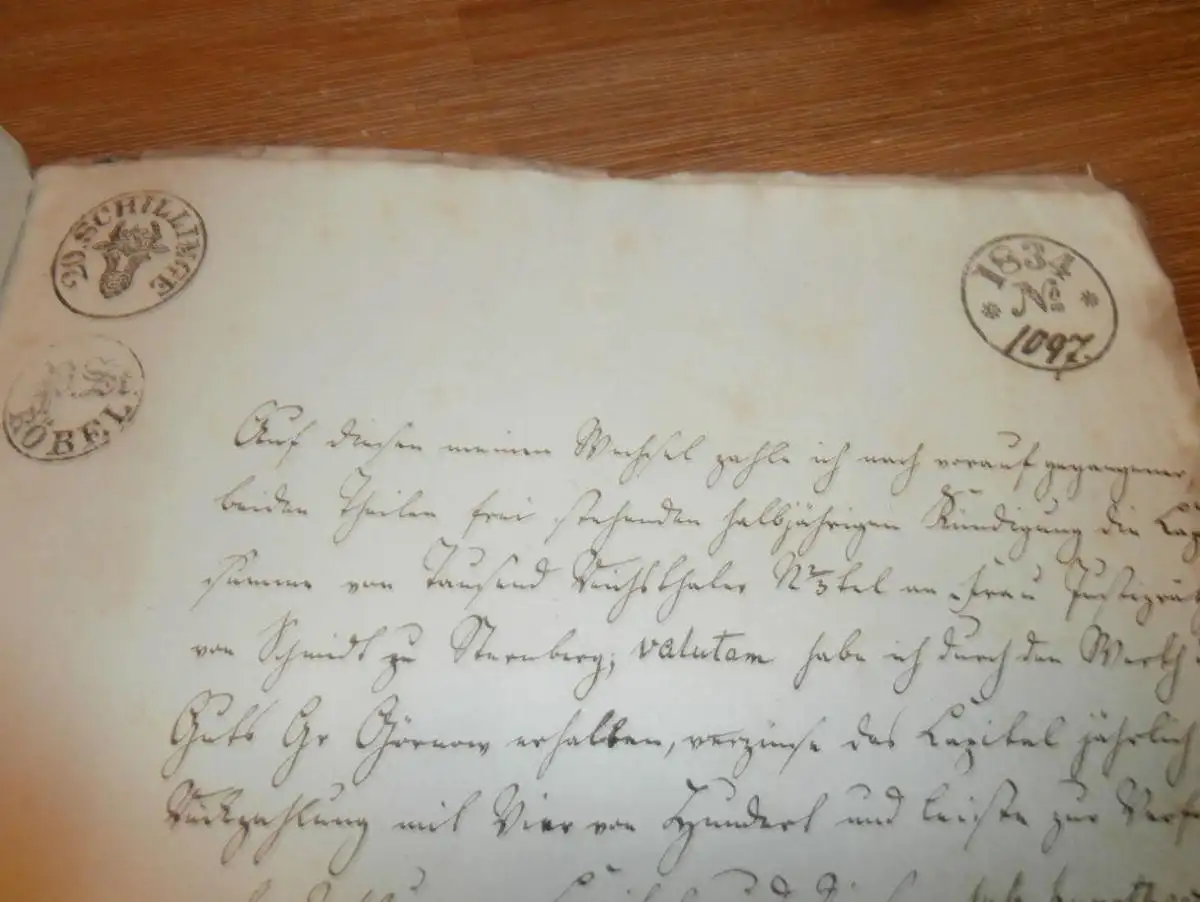 20. SCHILLINGE
1834
No
1097.
P. St.
RÖBEL.
Auf diesen meinen Wechsel zahle ich nach vorauf gegangener,
beiden Theilen frei stehenden halbjährigen Kündigung die Cap
summe von Tausend Reichsthaler N 2/3tel an Frau Justizrät
von Schmidt zu Sternberg; valutam habe ich durch den Werth
Guts Gr Görnow erhalten, verzinse das Capital jährlich
Rückzahlung mit Vier von Hundert und leiste zur Verf